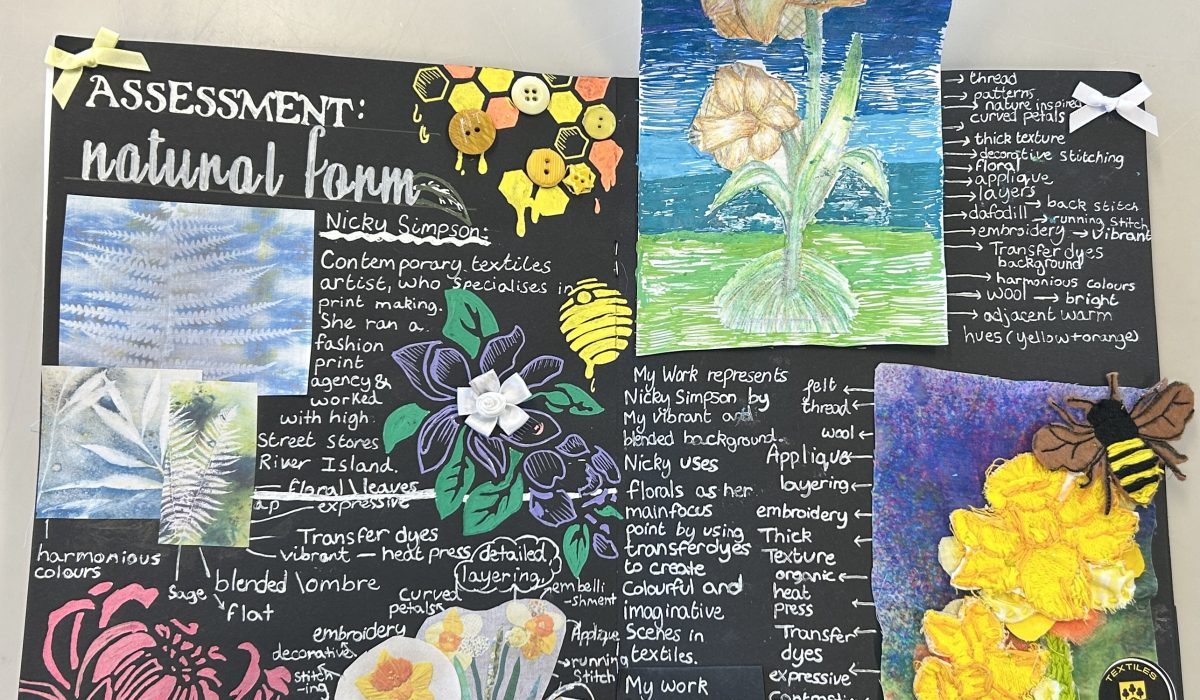 ASSESSMENT:
natural form
Nicky Simpson:
Contemporary textiles
artist, who specialises in
print making.
She ran a
fashion
print
agency &
worked
with high
Street stores
River Island.
floral\leaves
expressive
Transfer dyes
vibrant — heat press
harmonious
colours
Sage
blended \ombre
flat
detailed
layering
embelli
-shment
curved
petals
embroidery
decorative
stitch
-ing
Applique
running
Stitch
My Work represents
Nicky Simpson by
My vibrant and
blended background.
Nicky uses
florals as her
main focus
point by using
transferdyes
to create
Colourful and
imaginative
Scenes in
textiles.
My work
felt
thread
wool
Applique
layering
embroidery
Thick
Texture
organic
heat
press
Transfer
dyes
expressive
thread
patterns
nature inspired
curved petals
thick texture
decorative stitching
floral
applique
layers
back stitch
dafodill
running Stitch
embroidery
vibrant
Transfer dyes
background
harmonious colours
wool
bright
adjacent warm
hues (yellow + orange)
TEXTILES